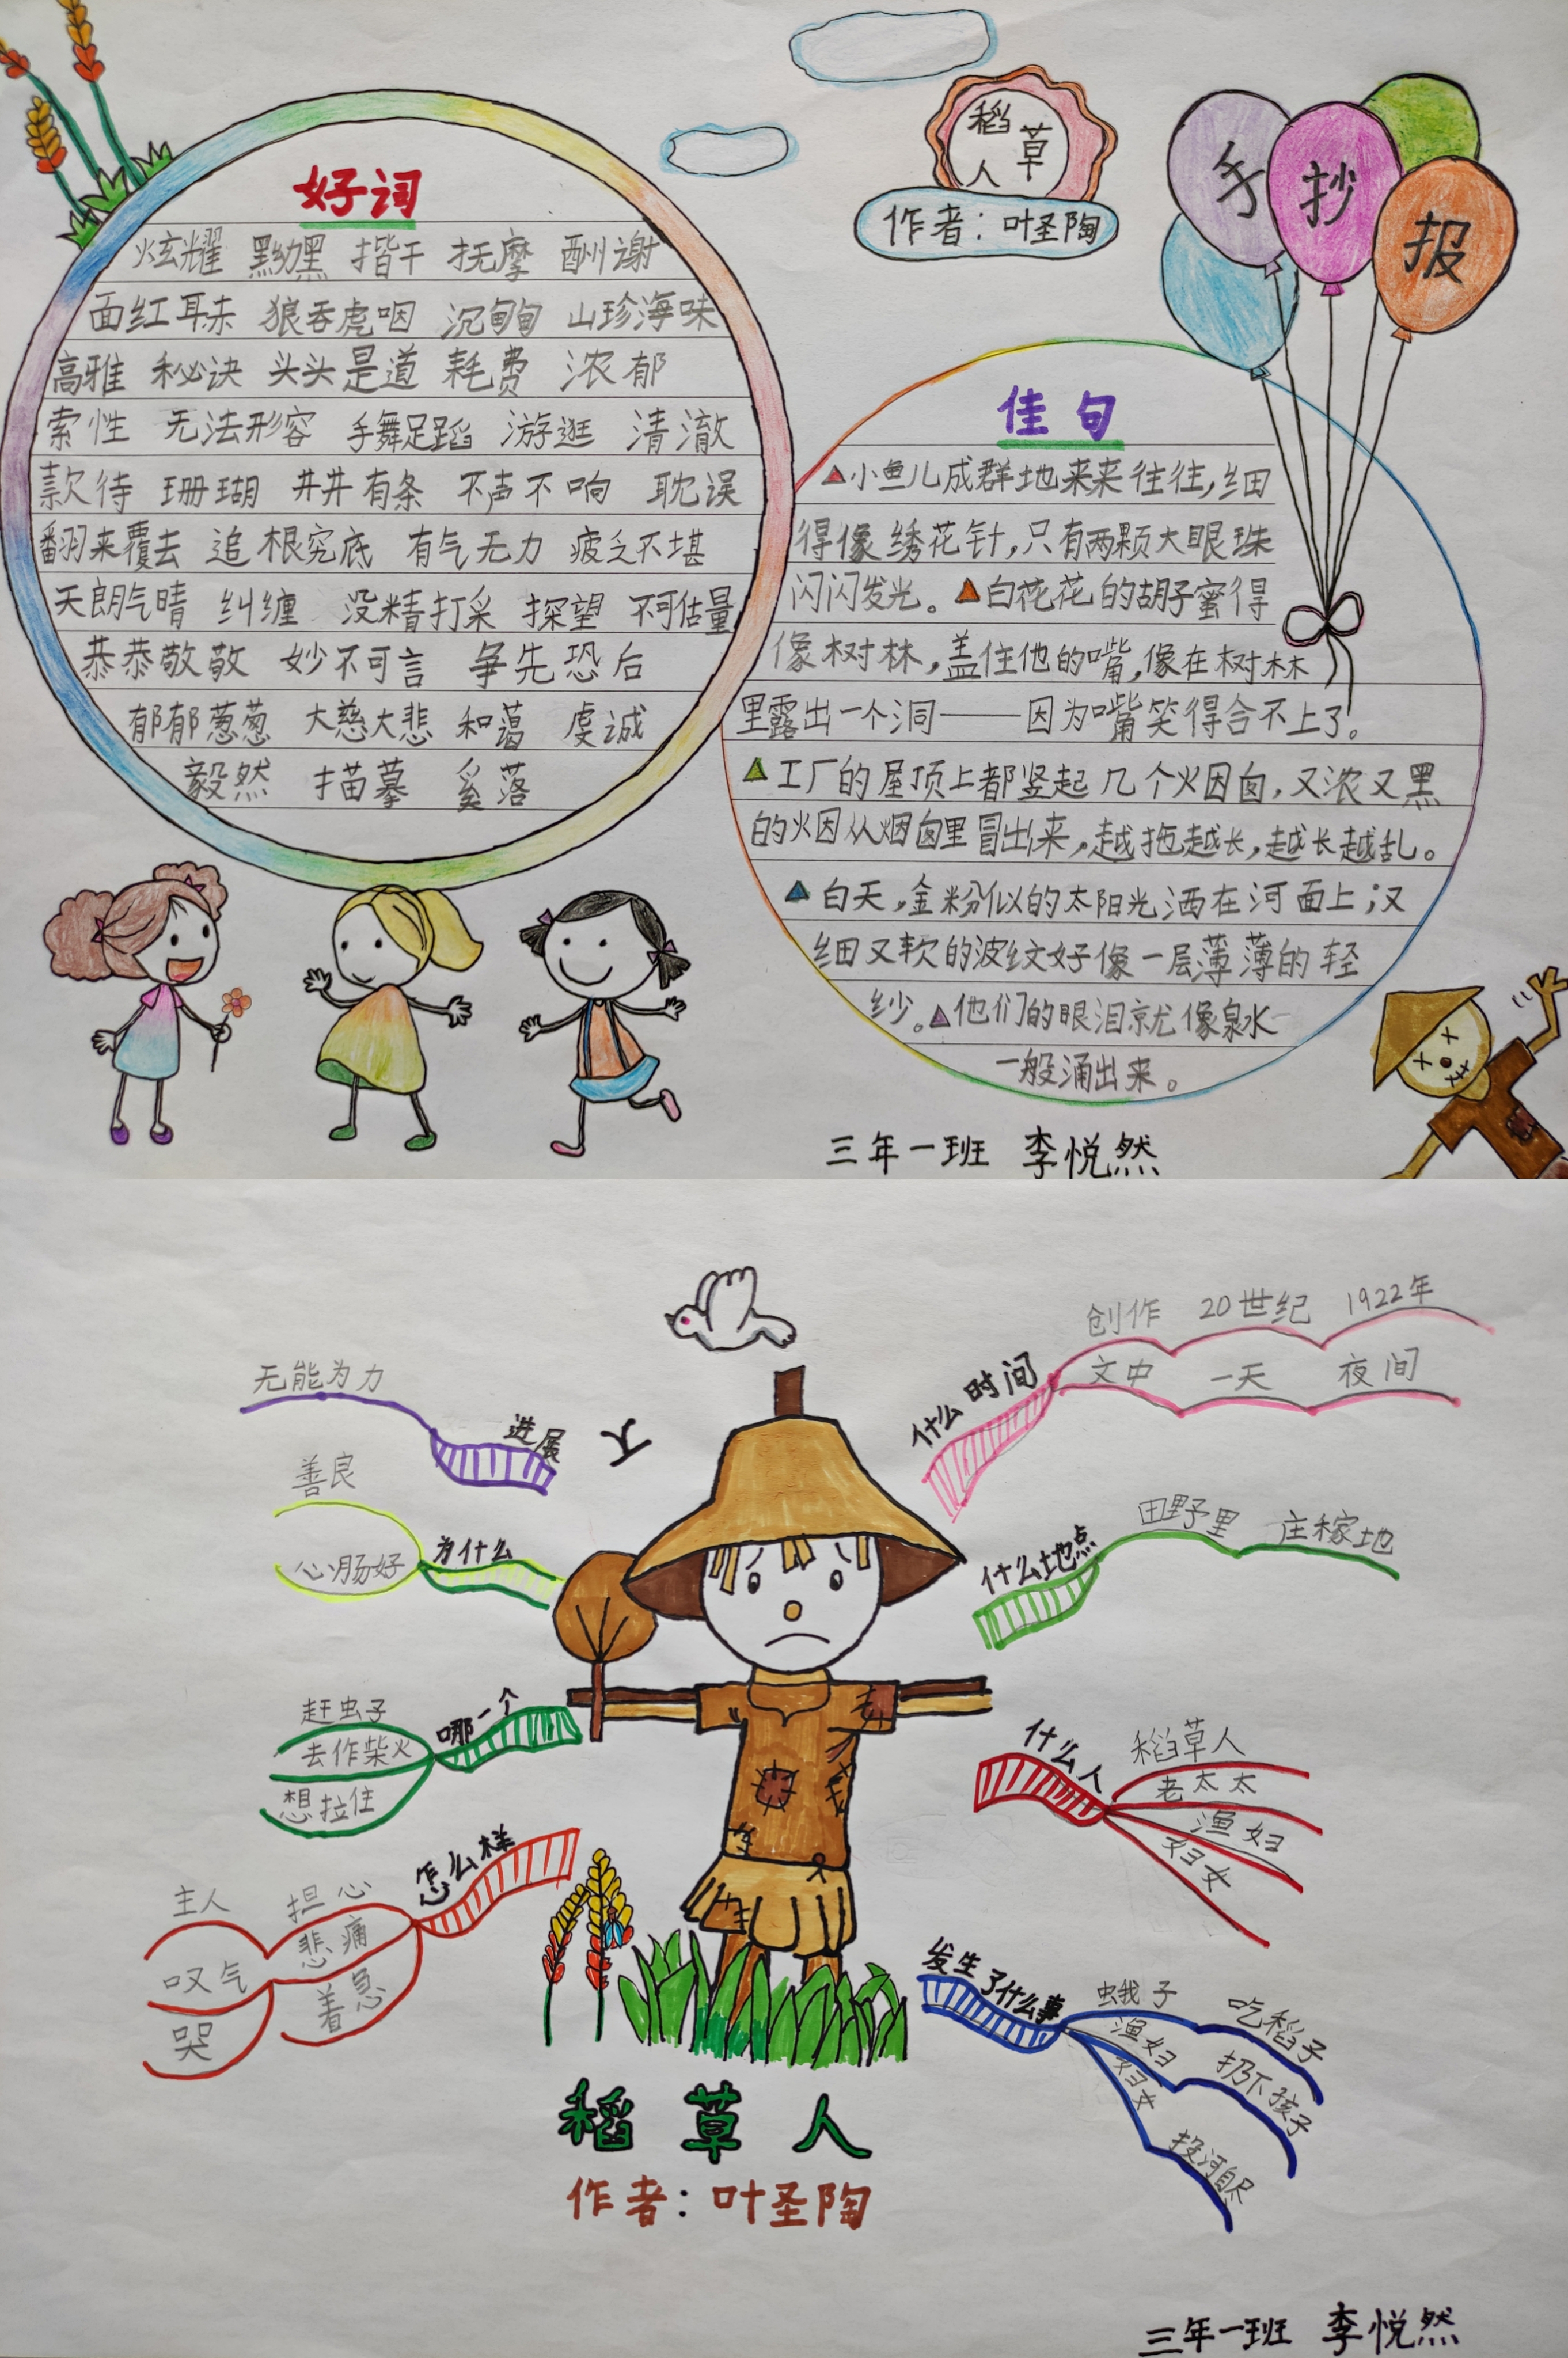 稻草人
作者：叶圣陶
手抄报
好词
炫耀 黑黝黝 揩干 抚摩 酬谢
面红耳赤 狼吞虎咽 沉甸甸 山珍海味
高雅 秘诀 头头是道 耗费 浓郁
索性 无法形容 手舞足蹈 游逛 清澈
款待 珊瑚 井井有条 不声不响 耽误
翻来覆去 追根究底 有气无力 疲乏不堪
天朗气晴 纠缠 没精打采 探望 不可估量
恭恭敬敬 妙不可言 争先恐后
郁郁葱葱 大慈大悲 和蔼 虔诚
毅然 描摹 奚落
佳句
小鱼儿成群地来来往往，细
得像绣花针，只有两颗大眼珠
闪闪发光。白花花的胡子蜜得
像树林，盖住他的嘴，像在树林
里露出一个洞——因为嘴笑得合不上了。
工厂的屋顶上都竖起几个火囱，又浓又黑
的火因从烟囱里冒出来，越拖越长，越长越乱。
白天，金粉似的太阳光洒在河面上；又
细又软的波纹好像一层薄薄的轻
纱。他们的眼泪就像泉水
一般涌出来。
三年一班 李悦然
什么时间
创作 20世纪 1922年
文中 一天 夜间
什么地点
田野里 庄稼地
什么人
稻草人
老太太
渔妇
妇女
发生了什么事
蛾子 吃稻子
渔妇 扔下孩子
妇女 投河自尽
怎么样
担心
悲痛
着急
主人
叹气
哭
哪一个
赶虫子
去作柴火
想拉住
为什么
善良
心肠好
进展
无能为力
稻草人
作者：叶圣陶
三年一班 李悦然